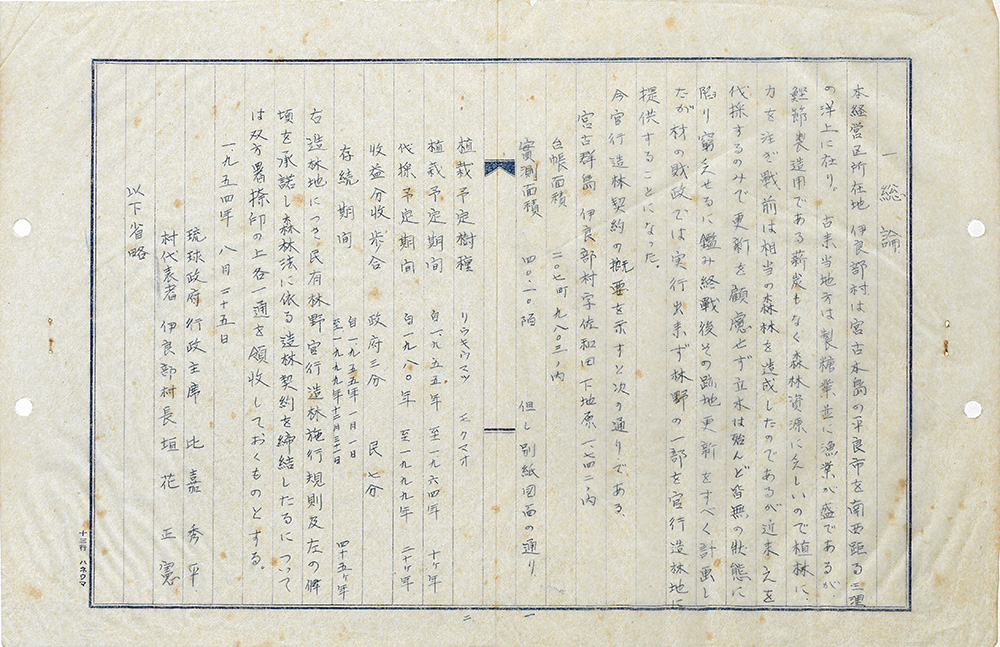 一 総論
本経営区所在地 伊良部村は宮古本島の平良市を南西距る三浬
の洋上に在り。 古来当地方は製糖業並に漁業が盛であるが、
鰹節製造用である薪炭もなく森林資源に乏しいので植林に、
力を注ぎ戦前は相当の森林を造成したのであるが近来之を
伐採するのみで更新を顧慮せず立木は殆んど皆無の状態に
陥り窮乏せるに鑑み終戦後その跡地更新をすべく計画し
たが村の財政では実行出来ず林野の一部を官行造林地に
提供することになった.
今官行造林契約の概要を示すと次の通りである、
宮古群島 伊良部村字佐和田 下地原一七四二ノ内
台帳面積 二〇七町九八〇三ノ内
實測面積 四〇.一〇陌 但し別紙図面の通り
植栽予定樹種 リウキウマツ モクマオ
植栽予定期间 自一九五五年 至一九六四年 十ヶ年
伐採予定期间 自一九八〇年 至一九九九年 二十ヶ年
收益分收歩合 政府三分 民七分
存続期间 自一九五五年一月一日 至一九九九年十二月三一日 四十五ヶ年
右造林地につき民有林野官行造林施行規則及左の條
項を承諾し森林法に依る造林契約を締結したるについて
は双方署捺印の上各一通を領收しておくものとする。
一九五四年 八月二十五日
琉球政府行政主席 比嘉秀平
村代表者 伊良部村長 垣花正憲
以下省略
一
二
十三行 ハネウマ